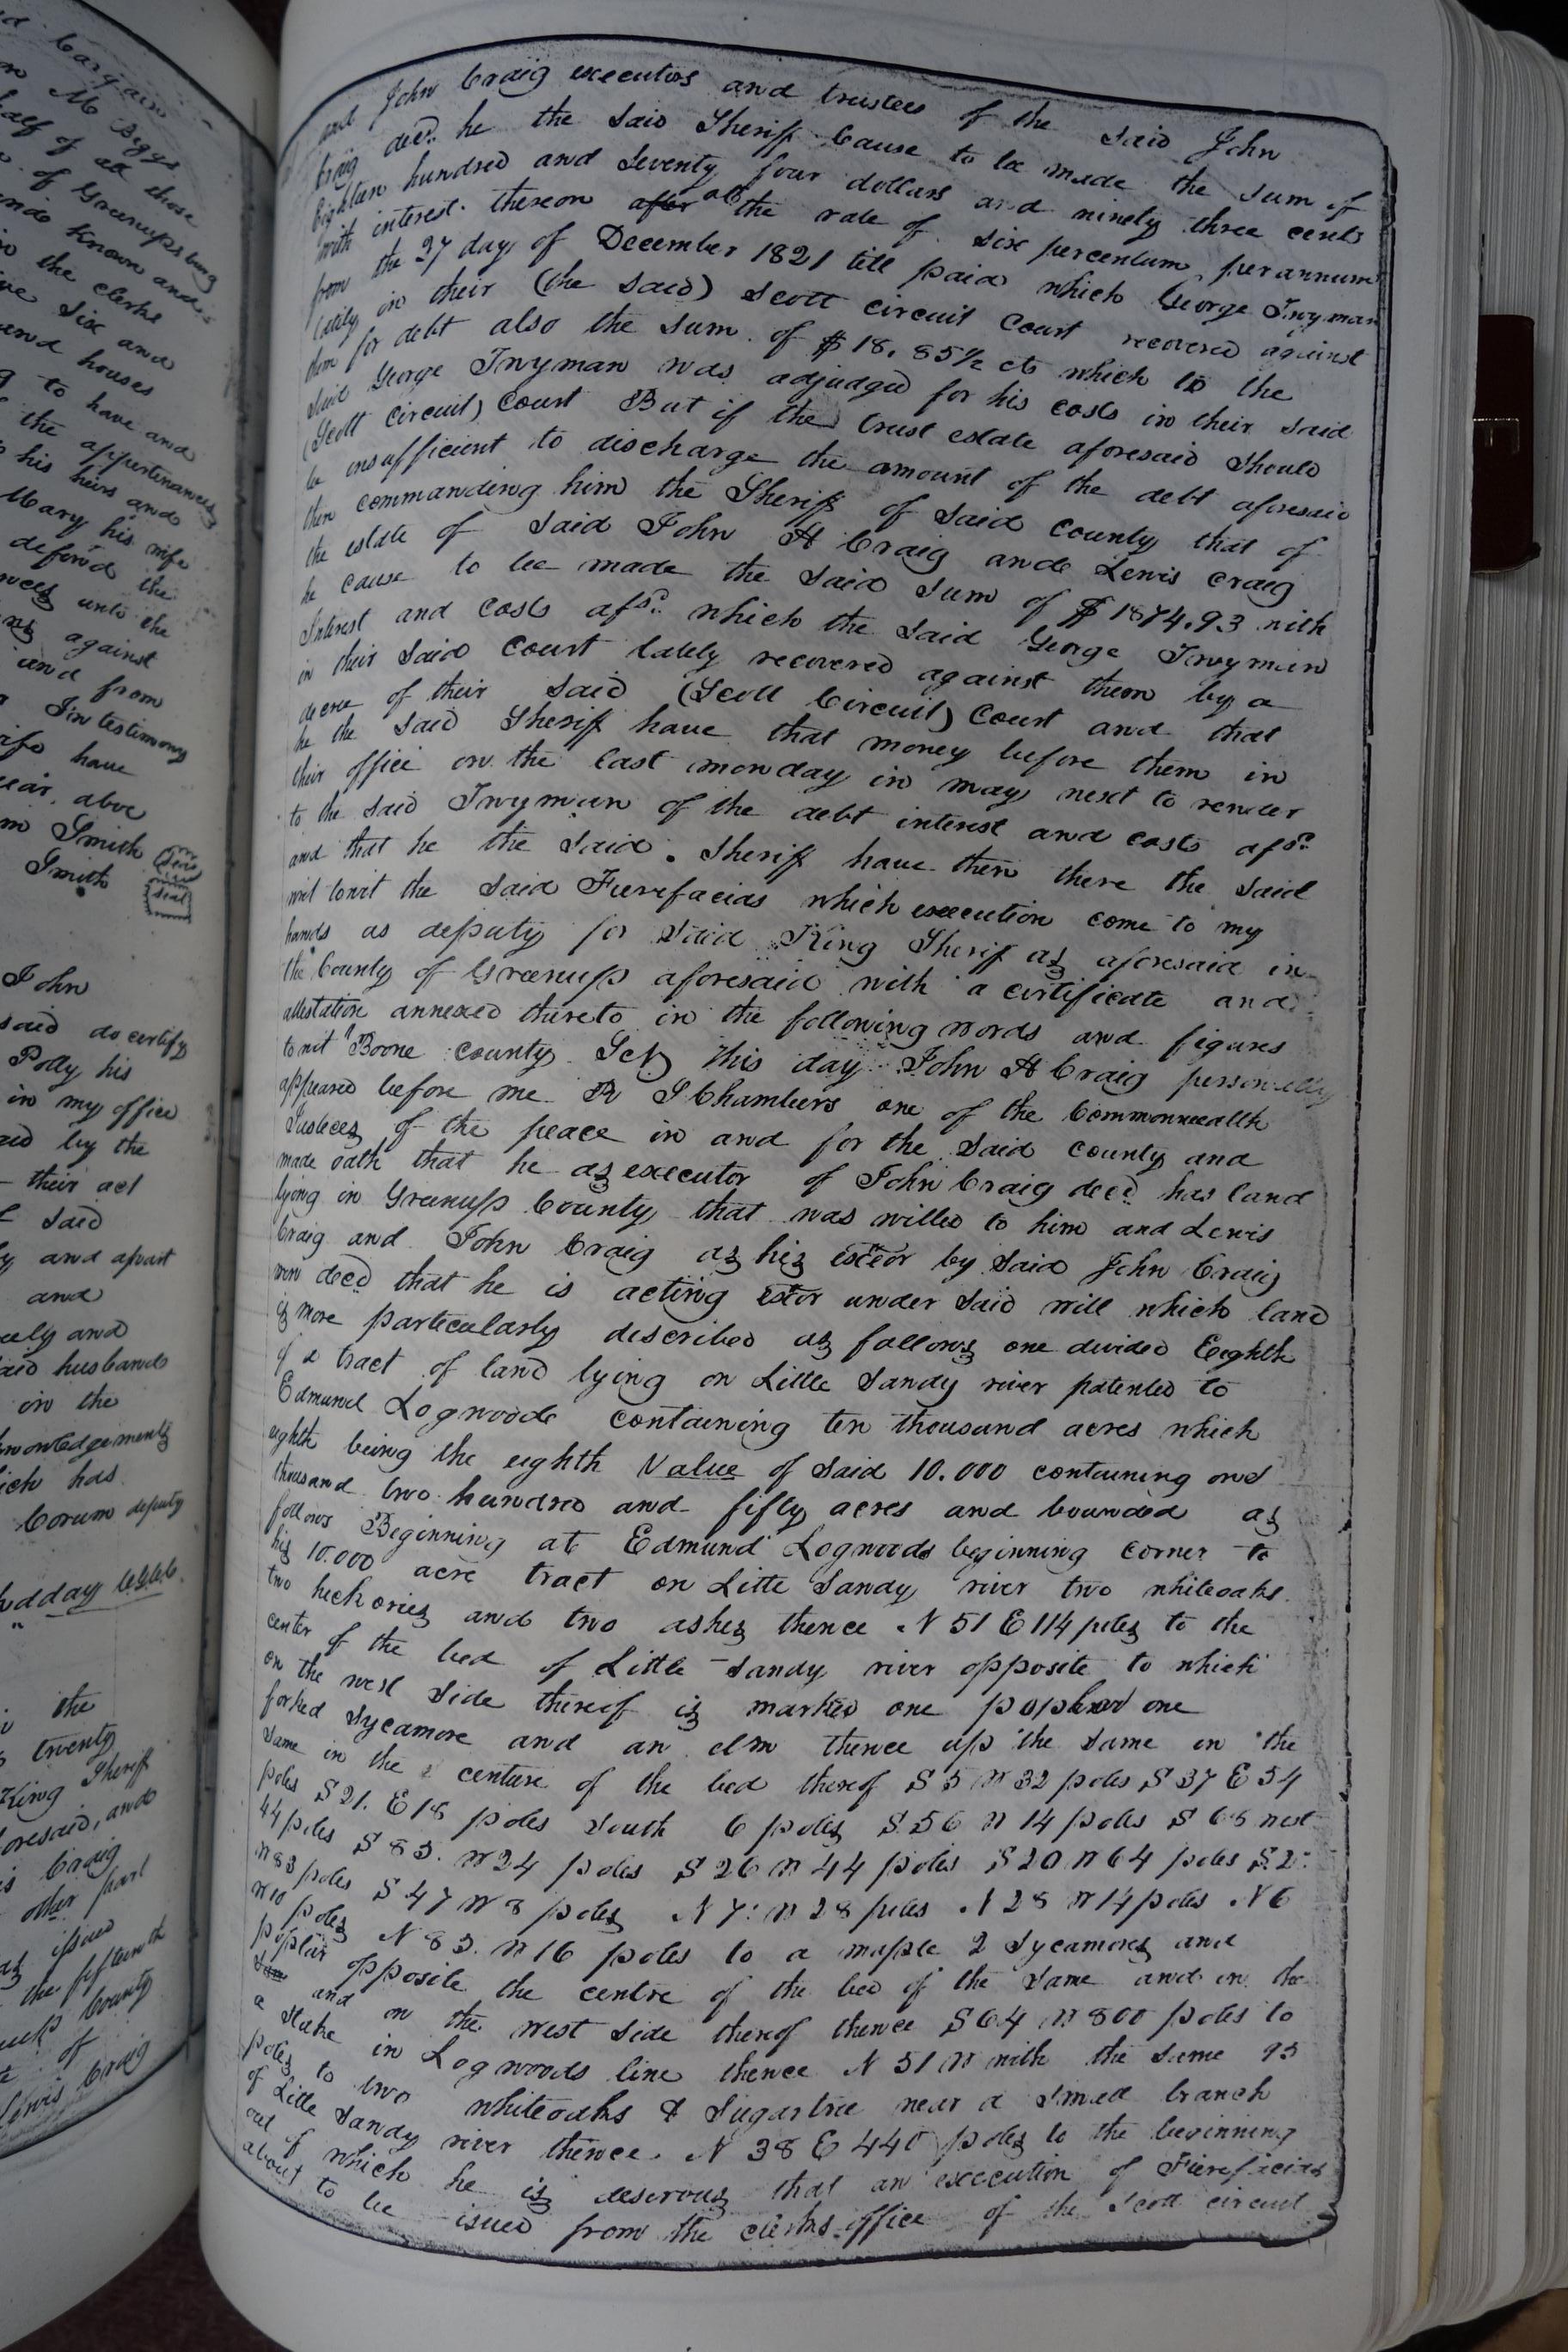 Bargain
M Biggs
half of all those
of Greenupsburg
known and
in the clerks
Six and
and houses
to have and
the appertenances
his heirs and
Mary his wife
defend the
unto the
against
and from
In testimony
have
year above
Smith
Smith
Seal
Seal
John
said do certify
Polly his
in my office
by the
their act
said
and apart
and
and
said husband
in the
acknowledgements
which has
Corum deputy
the
twenty
King Sheriff
aforesaid, and
Craig
other part
issued
the fifteenth
County
of
Lewis Craig
and John Craig executors and trustees of the said John
Craig decd. he the said Sheriff Cause to be made the sum of
Eighteen hundred and Seventy four dollars and ninety three cents
with interest thereon after at the rate of six percentum per annum
from the 27 day of December 1821 till paid which George Twyman
lately in their (the said) Scott circuit Court recovered against
them for debt also the sum of $18.85½ cts which to the
said George Twyman was adjudged for his costs in their said
(Scott Circuit) Court But if the trust estate aforesaid should
be insufficient to discharge the amount of the debt aforesaid
then commanding him the Sheriff of said county that of
the estate of said John H Craig and Lewis Craig
he cause to be made the said sum of $1874.93 with
Interest and costs afsd. which the said George Twyman
in their said Court lately recovered against them by a
decree of their said (Scott Circuit) Court and that
he the said Sheriff have that money before them in
their office on the last monday in may next to render
to the said Twyman of the debt interest and costs afsd.
and that he the said Sheriff have then there the said
writ towit the said Fierefacias which execution come to my
hands as deputy for said King Sheriff as aforesaid in
the County of Greenup aforesaid with a certificate and
attestation annexed thereto in the following words and figures
towit "Boone county Sct this day John H Craig personally
appeared before me R S Chambers one of the Commonwealth
Justices of the peace in and for the said county and
made oath that he as executor of John Craig decd has land
lying in Greenup County that was willed to him and Lewis
Craig and John Craig as his exeor by said John Craig
now decd that he is acting exor under said will which land
is more particularly described as follows one divided Eighth
of a tract of land lying on Little Sandy river patented to
Edmund Logwoode containing ten thousand acres which
eighth being the eighth Value of said 10.000 containing one
thousand two hundred and fifty acres and bounded as
follows Beginning at Edmund Logwoods beginning corner to
his 10.000 acre tract on Little Sandy river two whiteoaks
two hickories and two ashes thence N 51 E 114 poles to the
center of the bed of Little Sandy river opposite to which
on the west side thereof is marked one poplar one
forked Sycamore and an elm thence up the same in the
same in the centure of the bed thereof S 5 W 32 poles S 37 E 54
poles S 21. E 18 poles South 6 poles S 56 W 14 poles S 68 west
44 poles S 85. W 24 poles S 26 W 44 poles S 20 W 64 poles S 2
W 83 poles S 47 W 8 poles N 7 W 28 poles N 28 W 14 poles N 6
W 10 poles N 85. W 16 poles to a maple 2 Sycamores and
poplar opposite the centre of the bed of the same and in the
same and on the west side thereof thence S 64 W 800 poles to
a Stake in Logwoods line thence N 51 W with the same 95
poles to two whiteoaks & Sugartree near a small branch
of Little Sandy river thence N 38 E 440 poles to the beginning
out of which he is deserous that an execution of Fierefacias
about to be issued from the clerks office of the Scott circuit